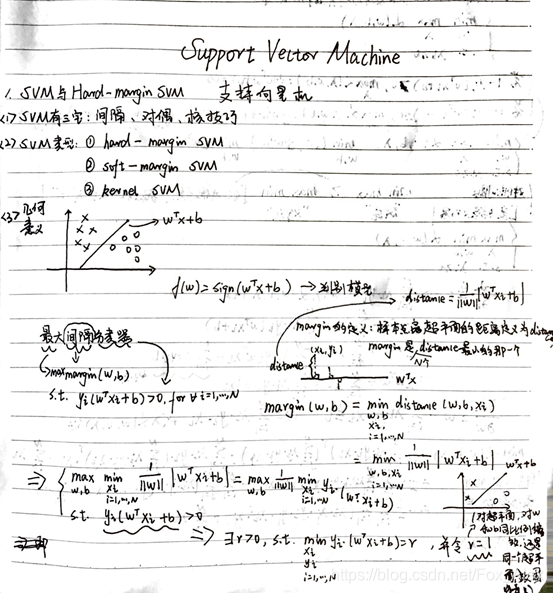 Support Vector Machine
1. SVM与Hard-margin SVM 支持向量机
<1> SVM有三宝：间隔、对偶、核技巧
<2> SVM类型：① hard-margin SVM
② soft-margin SVM
③ kernel SVM
<3> 几何意义
wᵀx+b
f(w)=sign(wᵀx+b) → 判别模型
distance = 1/||w|| |wᵀxi+b|
最大间隔分类器
margin的定义：样本点离超平面的距离定义为distance
margin是distance最小的那一个
N个
max margin(w,b)
s.t. yi(wᵀxi+b)>0, for ∀ i=1,…,N
distance
(xi, yi)
wᵀx
margin(w,b) = min distance(w,b,xi)
w,b
xi,
i=1,…,N
= min 1/||w|| |wᵀxi+b|
w,b,xi
i=1,…,N
wᵀx+b
⇒ { max min 1/||w|| |wᵀxi+b| = max 1/||w|| min yi·(wᵀxi+b)
w,b xi w,b xi
i=1,…,N i=1,…,N
s.t. yi(wᵀxi+b)>0
⇒ ∃ r>0, s.t. min yi·(wᵀxi+b)=r, 并令 r=1
xi
yi
i=1,…,N
对超平面，对w
和b同比例缩
放，还是
同一个超平
面
https://blog.csdn.net/Fox